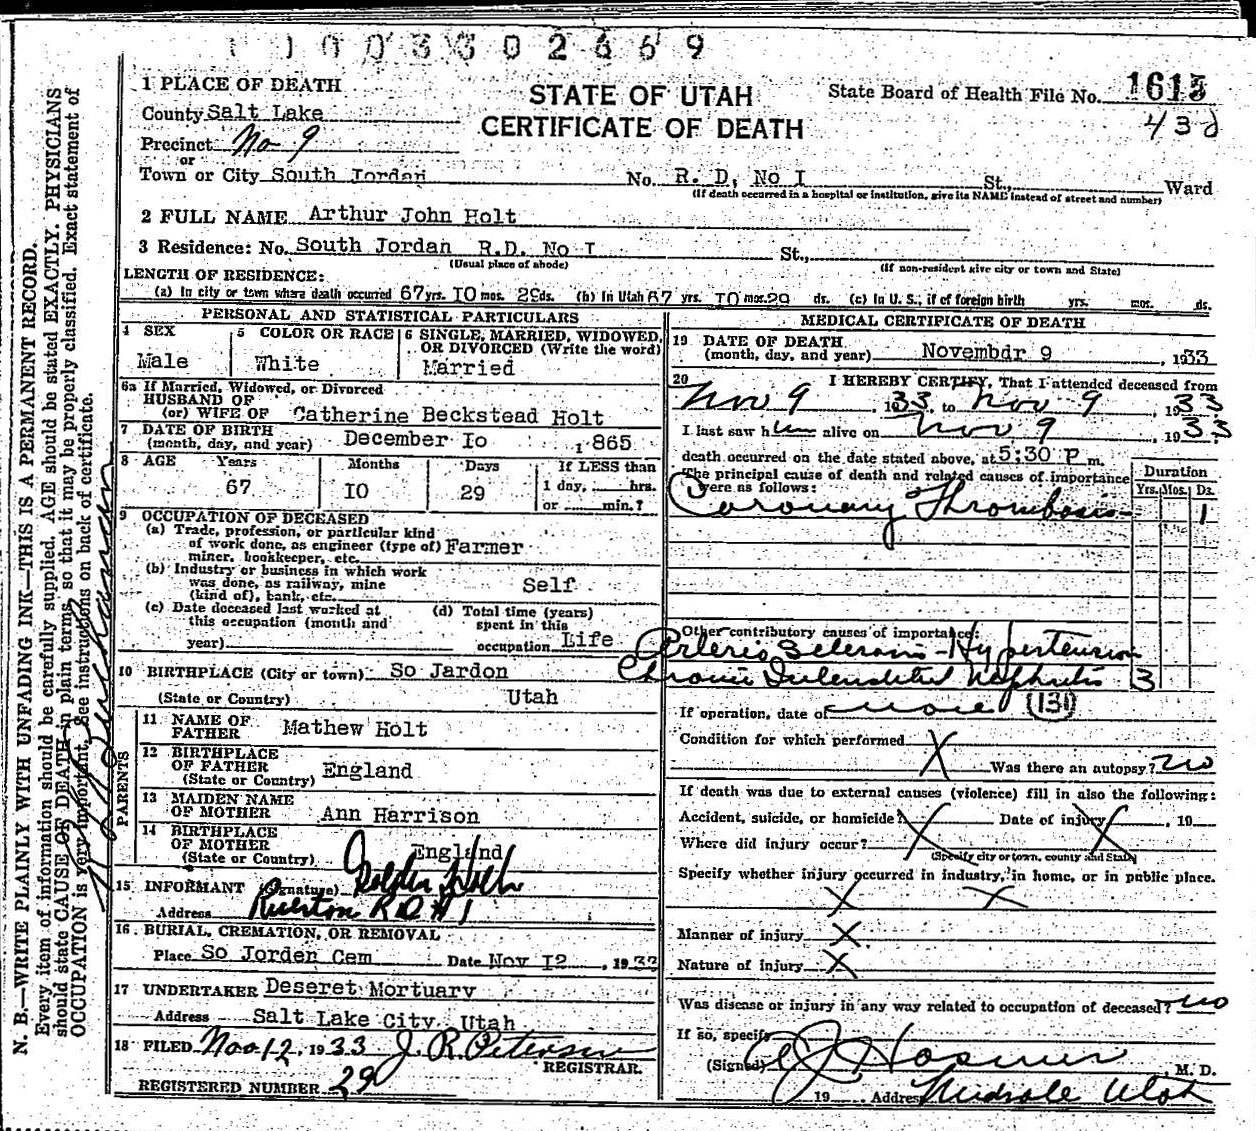 1003302669
1 PLACE OF DEATH
County Salt Lake
Precinct No 9
or
Town or City South Jordan
STATE OF UTAH
CERTIFICATE OF DEATH
State Board of Health File No. 1613
43d
No. R. D, No I St., Ward
(If death occurred in a hospital or institution, give its NAME instead of street and number)
2 FULL NAME Arthur John Holt
3 Residence: No. South Jordan R.D. No I St.,
(Usual place of abode) (If non-resident give city or town and State)
LENGTH OF RESIDENCE:
(a) In city or town where death occurred 67 yrs. IO mos. 29 ds. (b) In Utah 67 yrs. IO mos. 29 ds. (c) In U. S., if of foreign birth yrs. mos. ds.
PERSONAL AND STATISTICAL PARTICULARS
4 SEX
Male
5 COLOR OR RACE
White
6 SINGLE, MARRIED, WIDOWED,
OR DIVORCED (Write the word)
Married
6a If Married, Widowed, or Divorced
HUSBAND OF
(or) WIFE OF Catherine Beckstead Holt
7 DATE OF BIRTH
(month, day, and year) December Io , 1865
8 AGE Years Months Days If LESS than
67 IO 29 1 day, hrs.
or min.?
9 OCCUPATION OF DECEASED
(a) Trade, profession, or particular kind
of work done, as engineer (type of) Farmer
miner, bookkeeper, etc.
(b) Industry or business in which work
was done, as railway, mine Self
(kind of), bank, etc.
(c) Date deceased last worked at
this occupation (month and
year)
(d) Total time (years)
spent in this
occupation Life
10 BIRTHPLACE (City or town) So Jardon
(State or Country) Utah
PARENTS
11 NAME OF
FATHER Mathew Holt
12 BIRTHPLACE
OF FATHER England
(State or Country)
13 MAIDEN NAME
OF MOTHER Ann Harrison
14 BIRTHPLACE
OF MOTHER England
(State or Country)
15 INFORMANT (Signature) Golden Holt
Address Riverton RD #1
16 BURIAL, CREMATION, OR REMOVAL
Place So Jorden Cem Date Nov I2 , 1933
17 UNDERTAKER Deseret Mortuary
Address Salt Lake City Utah
18 FILED Nov 12, 1933 J. R. Peterson
REGISTRAR.
REGISTERED NUMBER 29
MEDICAL CERTIFICATE OF DEATH
19 DATE OF DEATH
(month, day, and year) Novembdr 9 , 1933
20 I HEREBY CERTIFY, That I attended deceased from
Nov 9 , 1933, to Nov 9 , 1933
I last saw him alive on Nov 9 , 1933
death occurred on the date stated above, at 5:30 P m.
The principal cause of death and related causes of importance
were as follows:
Duration
Yrs. Mos. Ds.
Coronary Thrombosis 1
Other contributory causes of importance:
Arterio Sclerosis - Hypertension
Chronic Interstitial Nephritis 3
If operation, date of none (131)
Condition for which performed X
Was there an autopsy? no
If death was due to external causes (violence) fill in also the following:
Accident, suicide, or homicide? X Date of injury X , 19
Where did injury occur?
(Specify city or town, county and State)
Specify whether injury occurred in industry, in home, or in public place.
X X
Manner of injury X
Nature of injury X
Was disease or injury in any way related to occupation of deceased? no
If so, specify
(Signed) Hosmer , M. D.
19 Address Midvale Utah
N. B.—WRITE PLAINLY WITH UNFADING INK—THIS IS A PERMANENT RECORD.
Every item of information should be carefully supplied. AGE should be stated EXACTLY. PHYSICIANS
should state CAUSE OF DEATH in plain terms, so that it may be properly classified. Exact statement of
OCCUPATION is very important. See instructions on back of certificate.